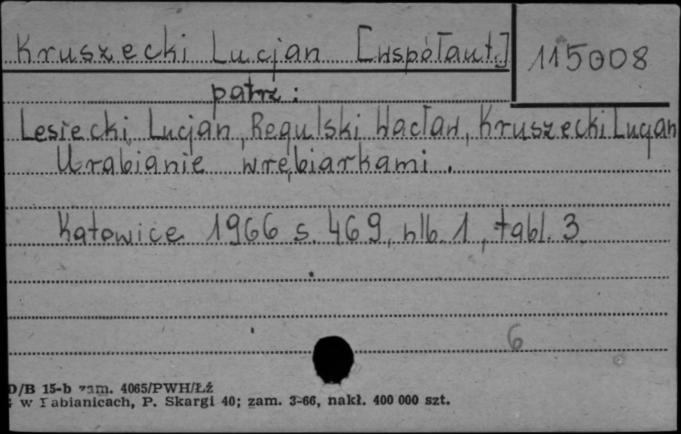 Kruszecki Lucjan [współaut.] 115008
patrz:
Lesiecki Lucjan, Regulski Wacław, Kruszecki Lucjan
Urabianie wrębiarkami.
Katowice 1966 s. 469, nlb. 1, tabl. 3
6
D/B 15-b zam. 4065/PWH/Łź
w Pabianicach, P. Skargi 40; zam. 3-66, nakł. 400 000 szt.